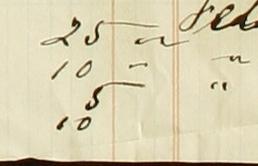 25 "
10 " "
5 "
10